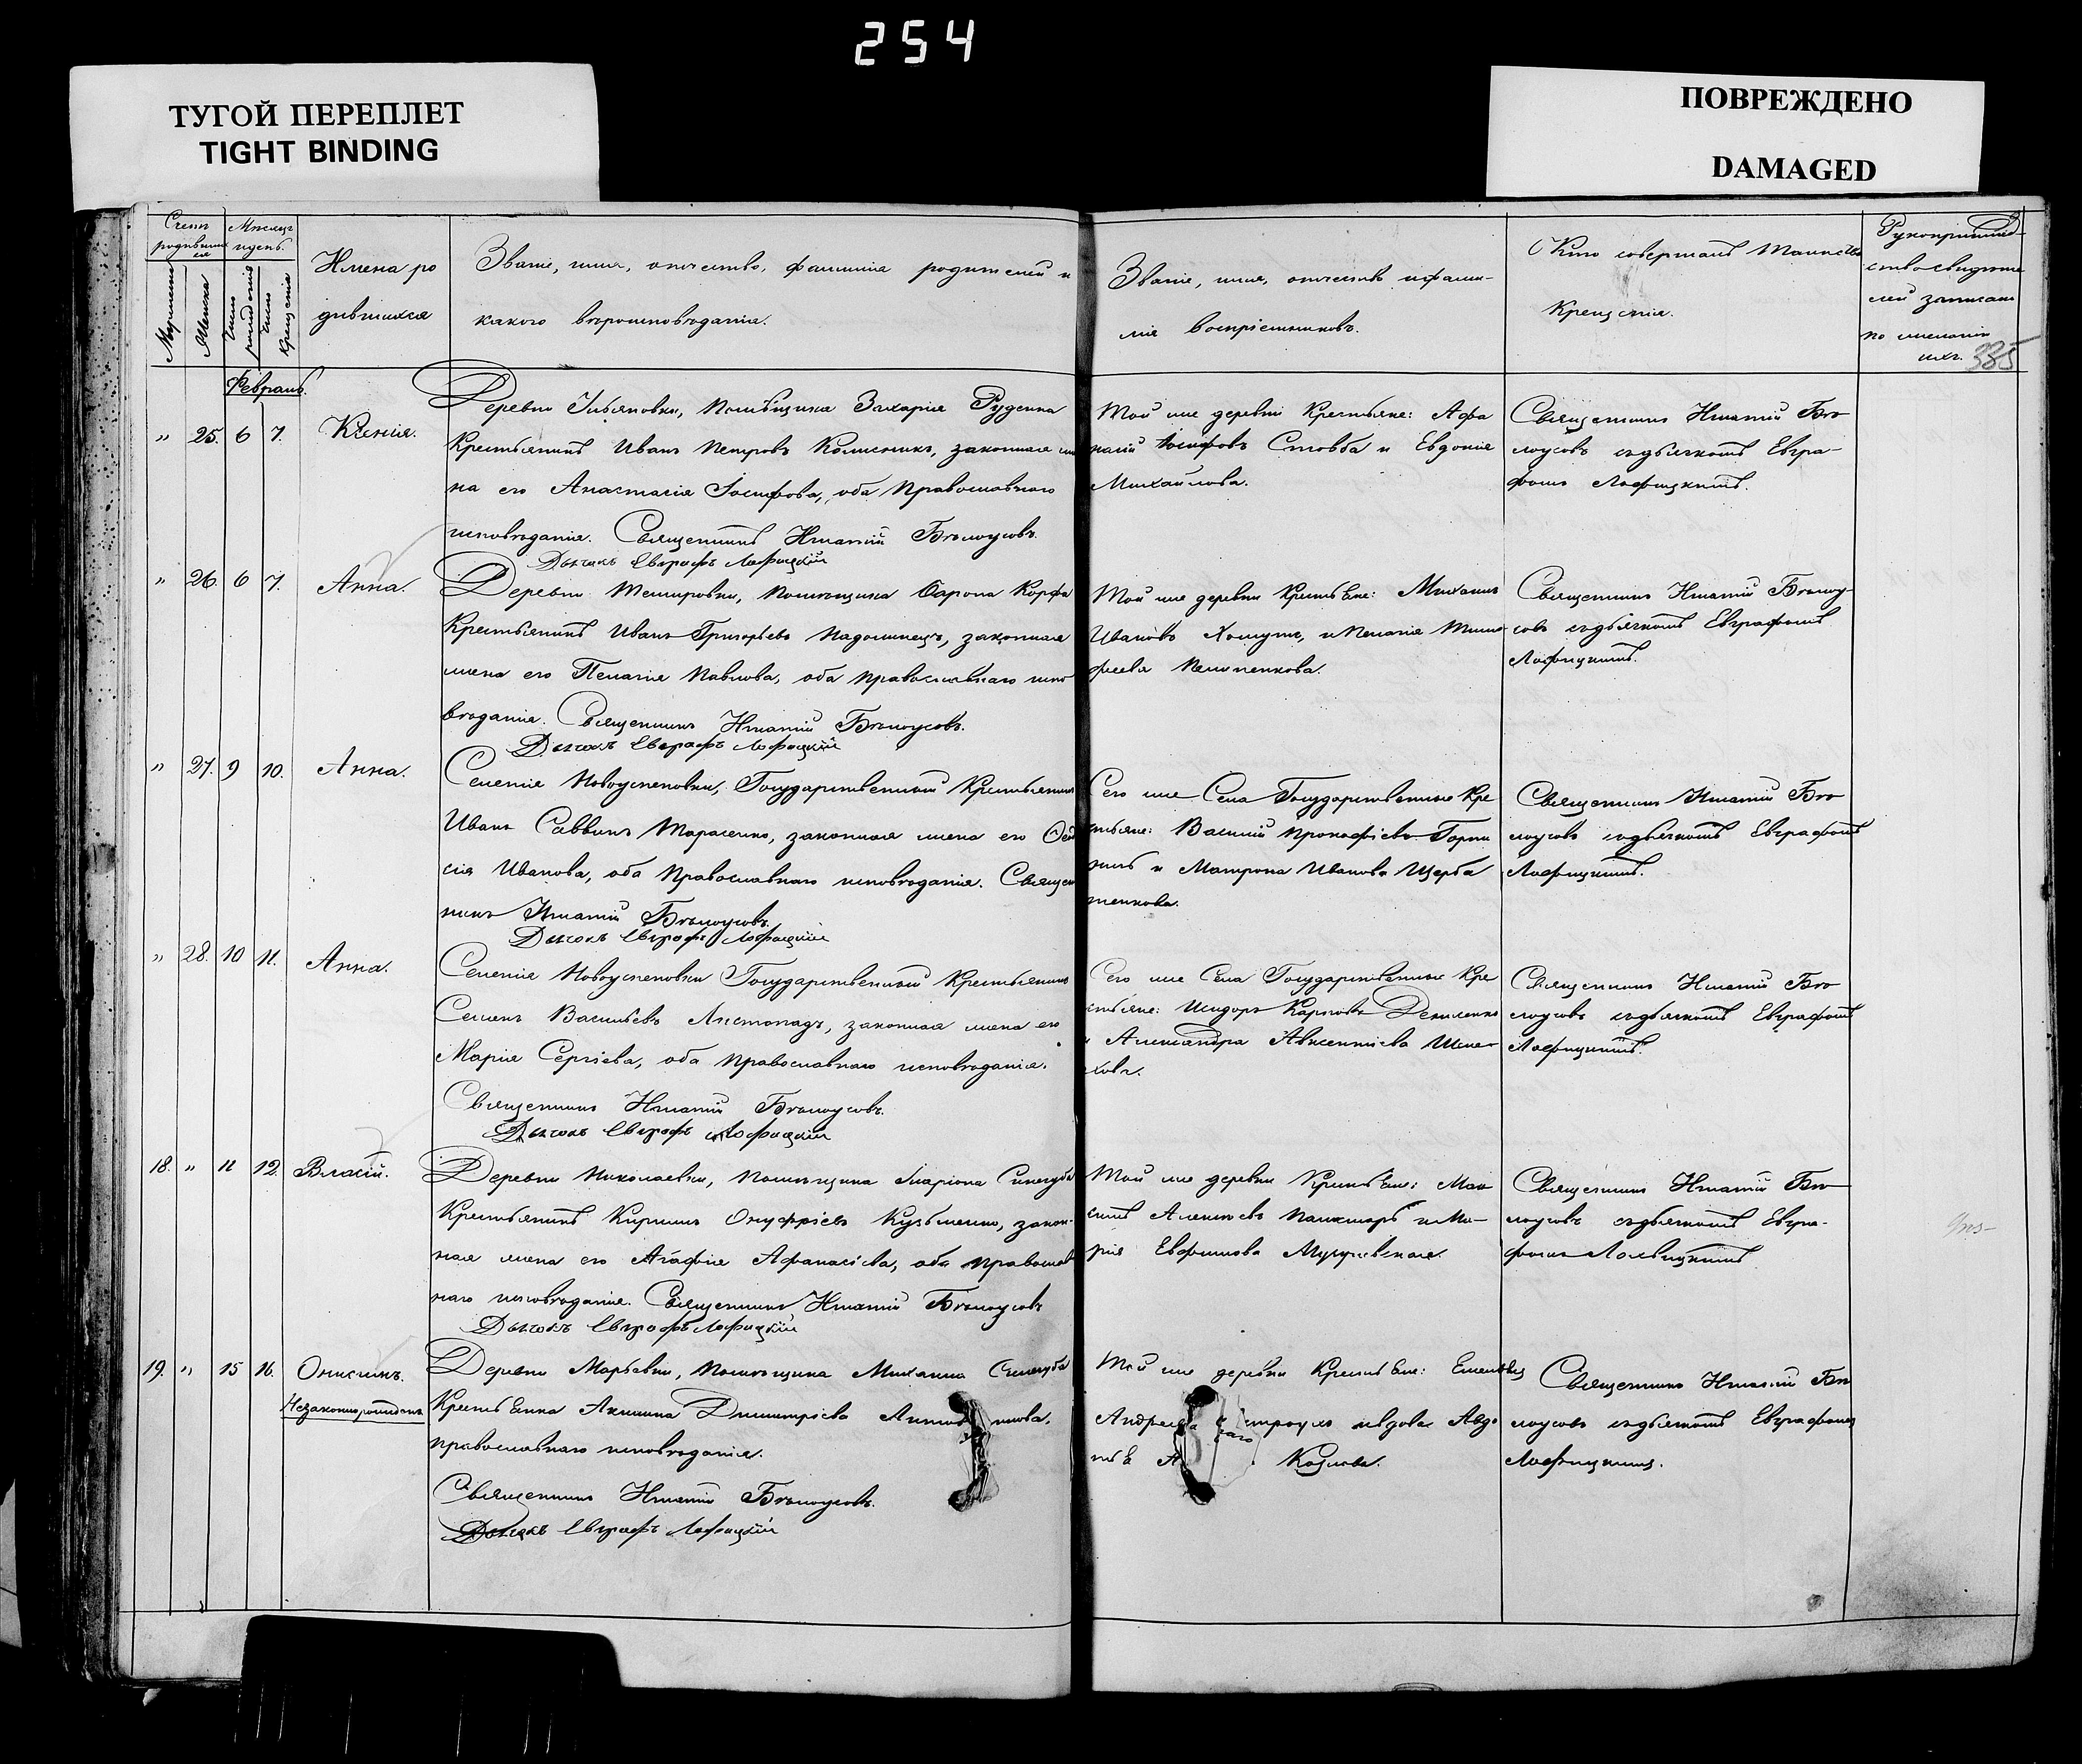 254
ТУГОЙ ПЕРЕПЛЕТ
TIGHT BINDING
ПОВРЕЖДЕНО
DAMAGED
Счетъ родившихся
Мѣсяцъ и день.
Мужеска
Женска
Число рожденія
Число крещенія
Имена ро
дившихся
Званіе, имя, отчество, фамилія родителей и
какого вѣроисповѣданія.
Званіе, имя, отчество и фами-
лія воспріемниковъ.
Кто совершалъ Таинство
Крещенія.
Рукоприклад-
ство свидѣте
лей записи
по желанію
ихъ.
385
Февраль.
" 25. 6 7. Ксенія.
Деревни Ульяновки, Помѣщика Захарія Руденка
Крестьянинъ Иванъ Петровъ Колесникъ, законная же
на его Анастасія Іосифова, оба Православнаго
исповѣданія. Священникъ Игнатій Бѣлоусовъ.
Дьячекъ Евграфъ Лофицкій
Той же деревни Крестьяне: Афа
насій Іосифовъ Стовба и Евдокія
Михайлова.
Священникъ Игнатій Бѣ
лоусовъ съ дьячкомъ Евгра-
фомъ Лофицкимъ.
" 26. 6 7. Анна.
Деревни Темировки, Помѣщика Барона Корфа
Крестьянинъ Иванъ Григорьевъ Падолинецъ, законная
жена его Пелагія Павлова, оба православнаго испо
вѣданія. Священникъ Игнатій Бѣлоусовъ.
Дьячекъ Евграфъ Лофицкій
Той же деревни Крестьяне: Михаилъ
Ивановъ Хомутъ, и Пелагія Тимо
феева Пилипенкова.
Священникъ Игнатій Бѣлоу-
совъ съ дьячкомъ Евграфомъ
Лофицкимъ.
" 27. 9 10. Анна.
Селенія Новоуспеновки, Государственный Крестьянинъ
Иванъ Саввинъ Тарасенко, законная жена его Ѳеодо
сія Иванова, оба Православнаго исповѣданія. Священ
никъ Игнатій Бѣлоусовъ.
Дьячекъ Евграфъ Лофицкій
Сего же Села Государственные Кре
стьяне: Василій Прокофіевъ
и Матрона Иванова Щерба
тенкова.
Священникъ Игнатій Бѣ
лоусовъ съ дьячкомъ Евграфомъ
Лофицкимъ.
" 28. 10 11. Анна.
Селенія Новоуспеновки Государственный Крестьянинъ
Семенъ Васильевъ Листопадъ, законная жена его
Марія Сергіева, оба православнаго исповѣданія.
Священникъ Игнатій Бѣлоусовъ.
Дьячекъ Евграфъ Лофицкій
Сего же Села Государственные Кре
стьяне: Исидоръ Карповъ
и Александра Авксентіева
Священникъ Игнатій Бѣ
лоусовъ съ дьячкомъ Евграфомъ
Лофицкимъ.
18. " 11 12. Власій.
Деревни Николаевки, Помѣщика Иларіона Синегуба
Крестьянинъ Кирилъ Онуфріевъ Кузьменко, закон-
ная жена его Агафія Афанасіева, оба православ
наго исповѣданія. Священникъ Игнатій Бѣлоусовъ
Дьячекъ Евграфъ Лофицкій
Той же деревни Крестьяне: Мак
симъ Алексѣевъ и Ма-
рія Евфимова
Священникъ Игнатій Бѣ
лоусовъ съ дьячкомъ Евгра-
фомъ Лофицкимъ
19. " 15 16. Онисимъ.
Незаконнорожденъ
Деревни Марьевки, Помѣщика Михаила Синегуба
Крестьянка Акилина Димитріева
православнаго исповѣданія.
Священникъ Игнатій Бѣлоусовъ.
Дьячекъ Евграфъ Лофицкій
Той же деревни Крестьяне:
Козлова.
Священникъ Игнатій Бѣ
лоусовъ съ дьячкомъ Евграфомъ
Лофицкимъ.